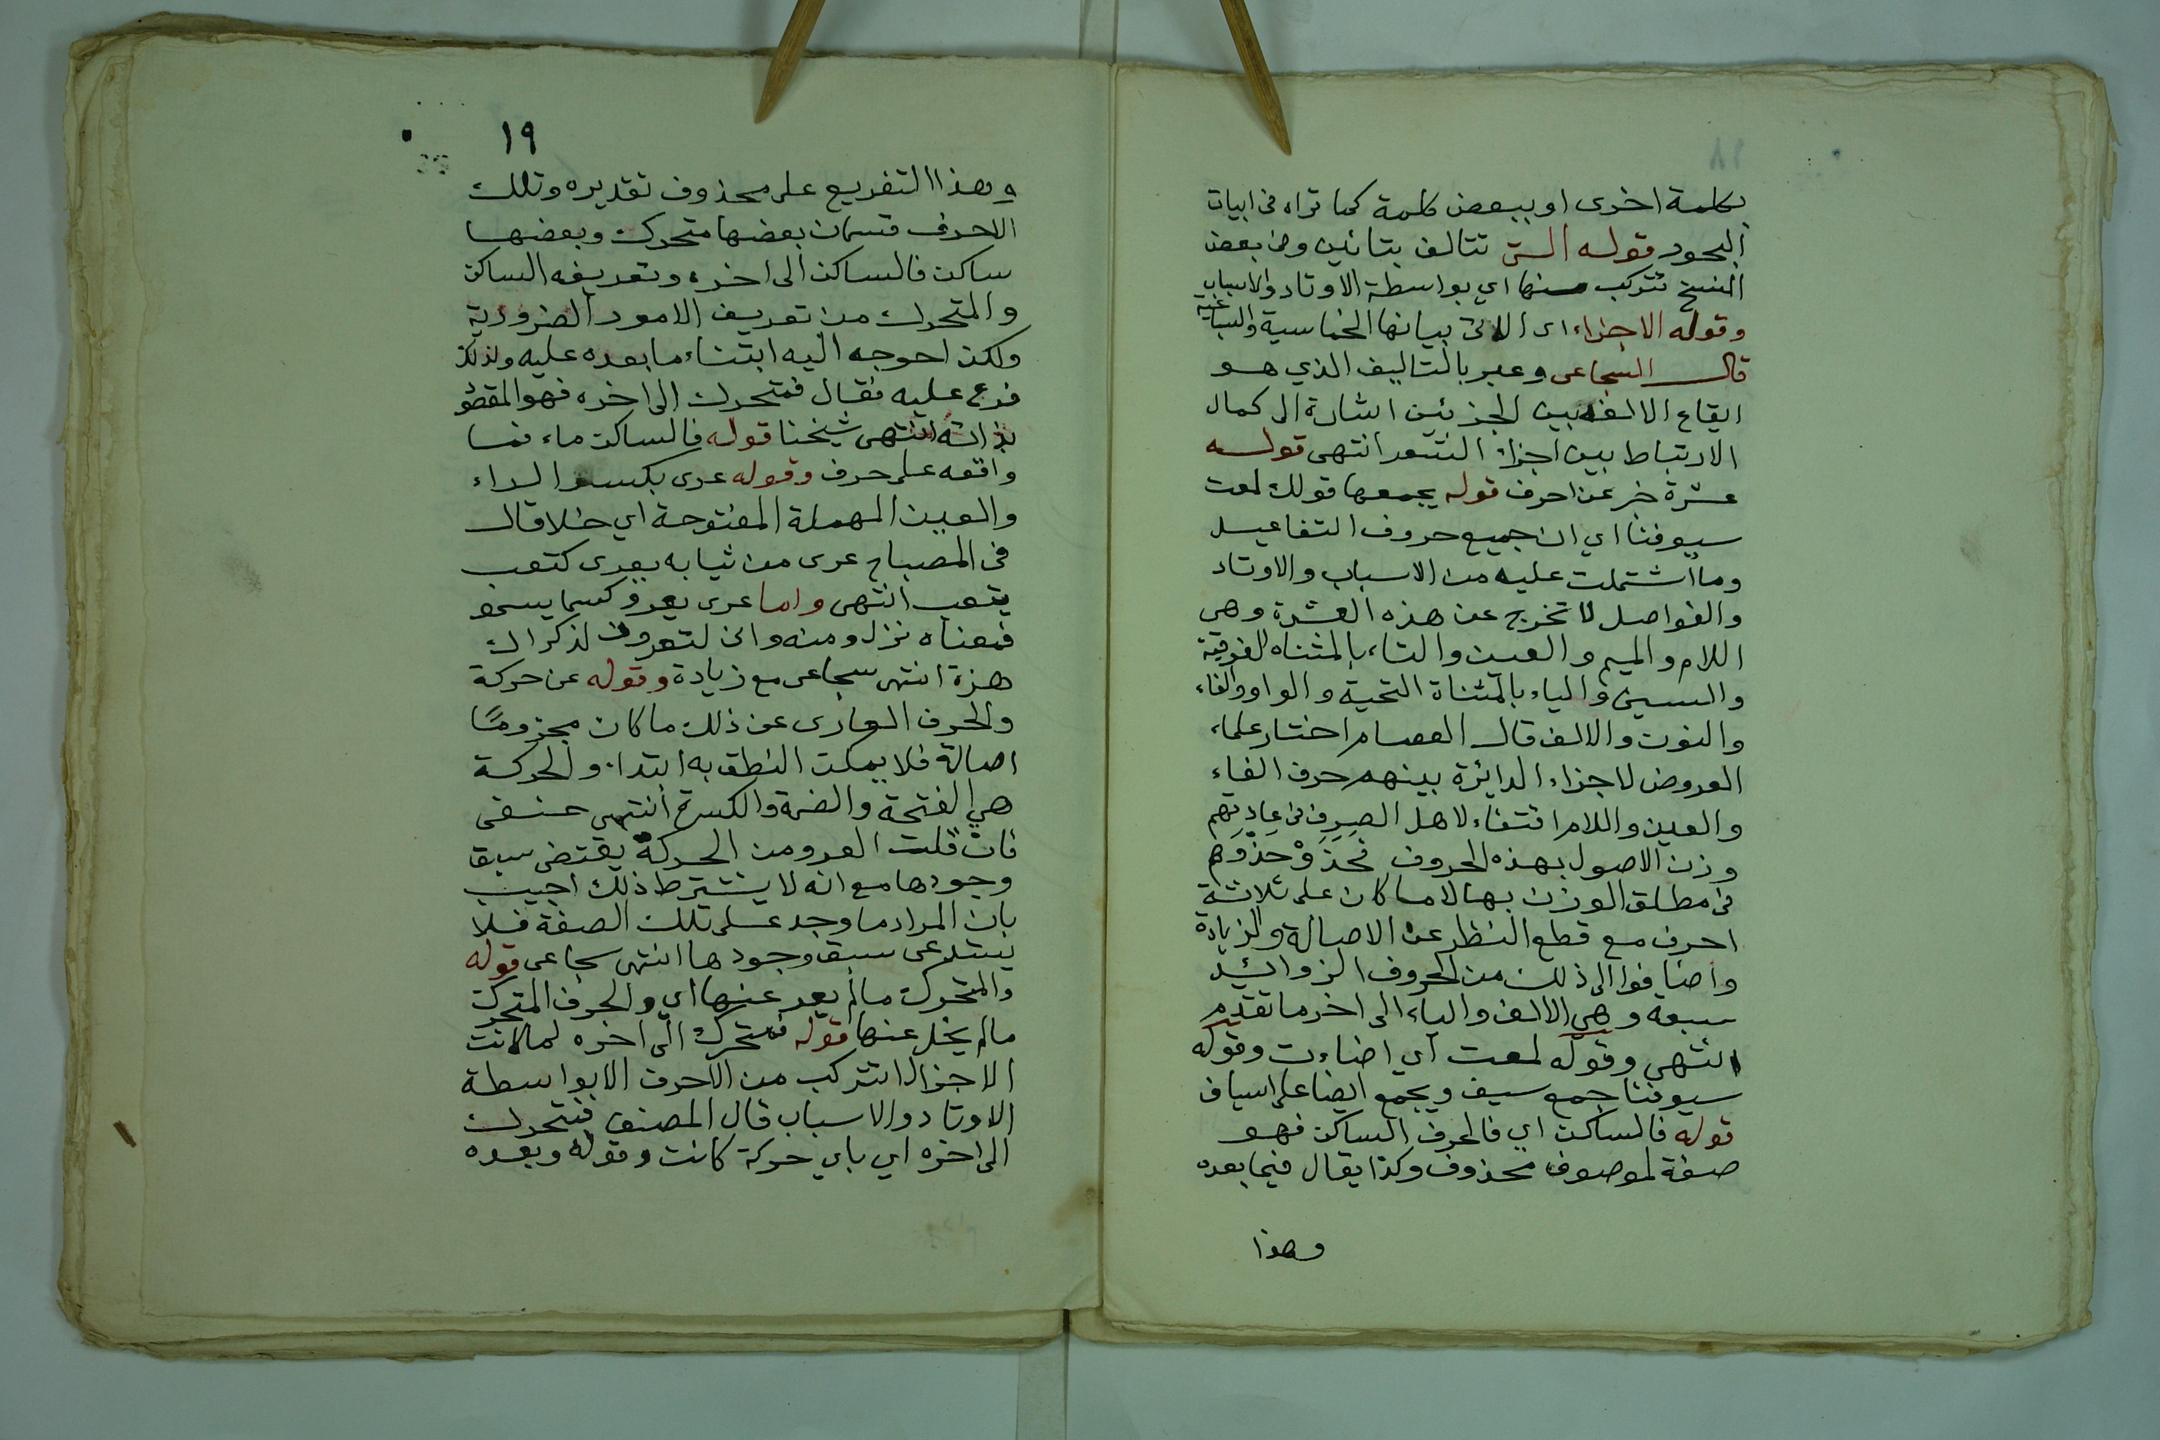 بكلمة اخرى او ببعض كلمة كما تراه فى ابيات
البحور قوله التى تتالف بتائين وفى بعض
النسخ تتركب منها اي بواسطة الاوتاد والاسباب
وقوله الاجزاء اى الاتى بيانها الخماسية والسباعية
قال السجاعى وعبر بالتاليف الذي هو
ايقاع الالفه بين الجزئين اشارة الى كمال
الارتباط بين اجزاء الشعر انتهى قوله
عشرة خبر عن احرف قوله يجمعها قولك لمعت
سيوفنا اي ان جميع حروف التفاعيل
وما اشتملت عليه من الاسباب والاوتاد
والفواصل لا تخرج عن هذه العشرة وهى
اللام والميم والعين والتاء بالمثناه الفوقية
والسين والياء بالمثناة التحية والواو والفاء
والنون والالف قال العصام اختار علماء
العروض لاجزاء الدائرة بينهم حرف الفاء
والعين واللام اقتفاء لاهل الصرف فى عادتهم
وزن الاصول بهذه الحروف فحذو حذوهم
فى مطلق الوزن بها لا ما كان على ثلاثة
احرف مع قطع النظر عن الاصالة والزيادة
واضافوا الى ذلك من الحروف الزوائد
سبعة وهى الالف والياء الى اخر ما تقدم
انتهى وقوله لمعت اي اضاءت وقوله
سيوفنا جمع سيف ويجمع ايضا على اسياف
قوله فالساكن اي فالحرف الساكن فهو
صفة لموصوف محذوف وكذا يقال فيما بعده
وهذا
١٩
وهذا التفريع على محذوف تقديره وتلك
الاحرف قسمان بعضها متحرك وبعضها
ساكن فالساكن الى اخره وتعريفه الساكن
والمتحرك من تعريف الامور الضرورية
ولكن احوجه اليه ابتناء ما بعده عليه ولذلك
فرع عليه فقال فمتحرك الى اخره فهو المقصود
بذاته انتهى شيخنا قوله فالساكن ماء فما
واقعه على حرف وقوله عرى بكسر الراء
والعين المهملة المفتوحة اي خلا قال
فى المصباح عرى من ثيابه يعرى كتعب
يتعب انتهى واما عرى يعرو كسما يسمو
فمعناه نزل ومنه وانى لتعرونى لذكراك
هزة انتهى سجاعى مع زيادة وقوله عن حركة
والحرف العارى عن ذلك ما كان مجزومًا
اصالة فلا يمكن النطق به ابتداء والحركة
هي الفتحة والضمة والكسرة انتهى حنفى
فان قلت العرو من الحركة يقتضى سبق
وجودها مع انه لا يشترط ذلك اجيب
بان المراد ما وجد على تلك الصفة فلا
يستدعى سبق وجودها انتهى سجاعى قوله
والمتحرك مالم يعر عنها اي والحرف المتحرك
مالم يخل عنها قوله فمتحرك الى اخره لما كانت
الاجزاء لا تتركب من الاحرف الا بواسطة
الاوتاد والاسباب قال المصنف فمتحرك
الى اخره اي باي حركة كانت وقوله وبعده